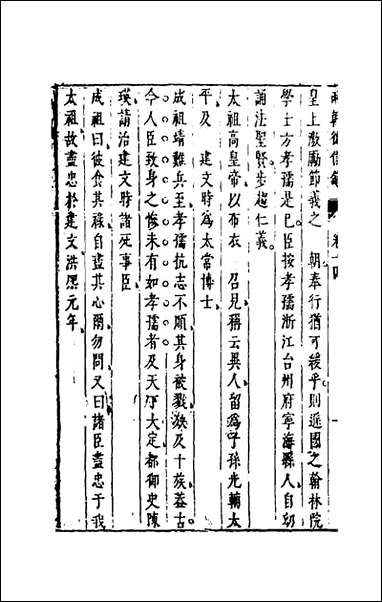 兩朝從信錄 卷十四
皇上激勵節義之 朝奉行猶可緩乎則遜國之翰林院
學士方孝孺是已臣按孝孺浙江台州府寧海縣人自幼
誦法聖賢步趨仁義
太祖高皇帝以布衣 召見稱云異人留為子孫光輔太
平及 建文時為太常博士
成祖靖難兵至孝孺抗志不順其身被戮族及十族蓋古
今人臣致身之慘未有如孝孺者及天下大定都御史陳
瑛請治建文時諸死事臣
成祖曰彼食其祿自盡其心爾勿問又曰諸臣盡忠于我
太祖故盡忠於建文洪熙元年